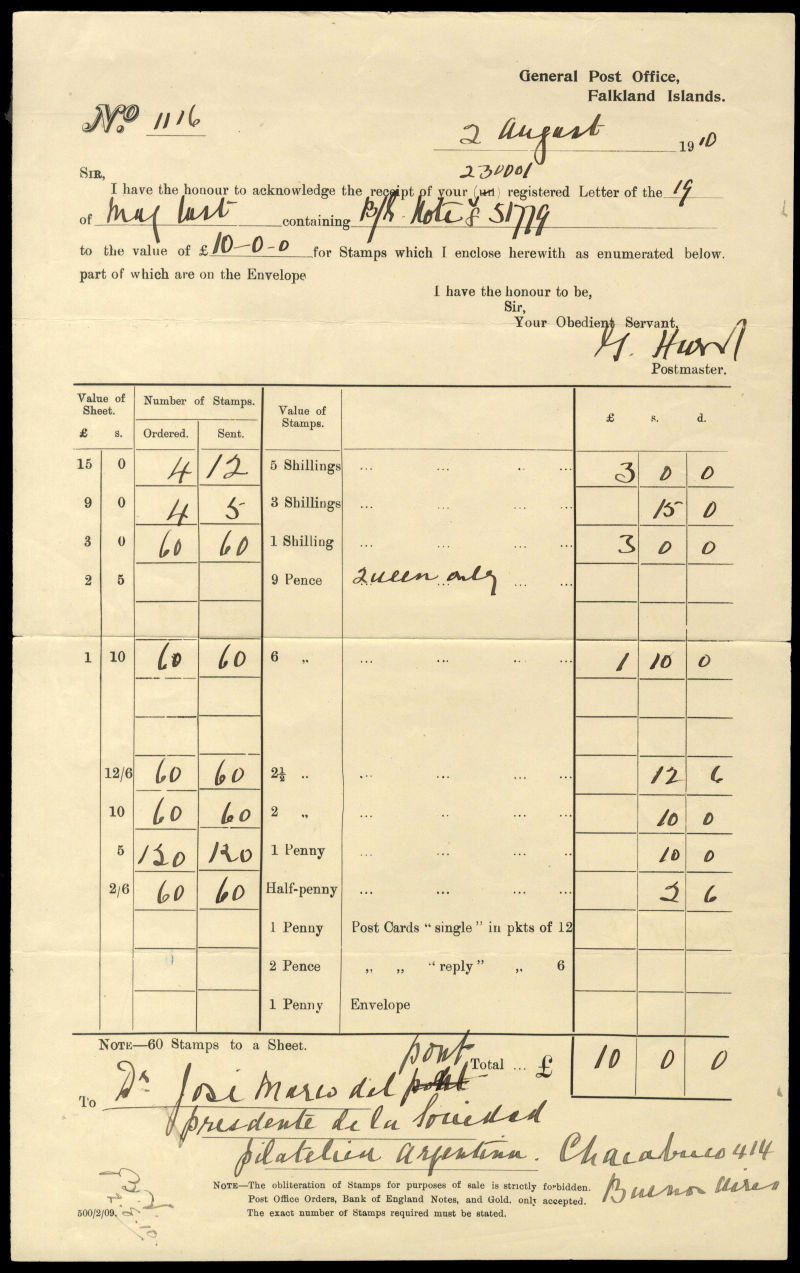 General Post Office,
Falkland Islands.
No. 1116
2 August 1910
230001
SIR,
I have the honour to acknowledge the receipt of your (un) registered Letter of the 19
of May last containing B/k Note 51779
to the value of £ 10-0-0 for Stamps which I enclose herewith as enumerated below.
part of which are on the Envelope
I have the honour to be,
Sir,
Your Obedient Servant,
Postmaster.
Value of Sheet. Number of Stamps. Value of Stamps. £ s. d.
£ s. Ordered. Sent.
15 0 4 12 5 Shillings ... ... .. ... 3 0 0
9 0 4 5 3 Shillings ... ... ... ... 15 0
3 0 60 60 1 Shilling ... ... ... ... 3 0 0
2 5 9 Pence Queen only ... ...
1 10 60 60 6 „ ... ... ... ... 1 10 0
12/6 60 60 2½ „ ... ... ... ... 12 6
10 60 60 2 „ ... .. ... ... 10 0
5 120 120 1 Penny ... ... ... .. 10 0
2/6 60 60 Half-penny ... ... ... ... 2 6
1 Penny Post Cards "single" in pkts of 12
2 Pence „ „ "reply" „ 6
1 Penny Envelope
NOTE—60 Stamps to a Sheet.
Total ... £ 10 0 0
pont
To Dr José Marco del
presdente de la Sociedad
filatelica Argentina. Chacabuco 414
Buenos Aires
NOTE—The obliteration of Stamps for purposes of sale is strictly forbidden.
Post Office Orders, Bank of England Notes, and Gold, only accepted.
The exact number of Stamps required must be stated.
500/2/09.